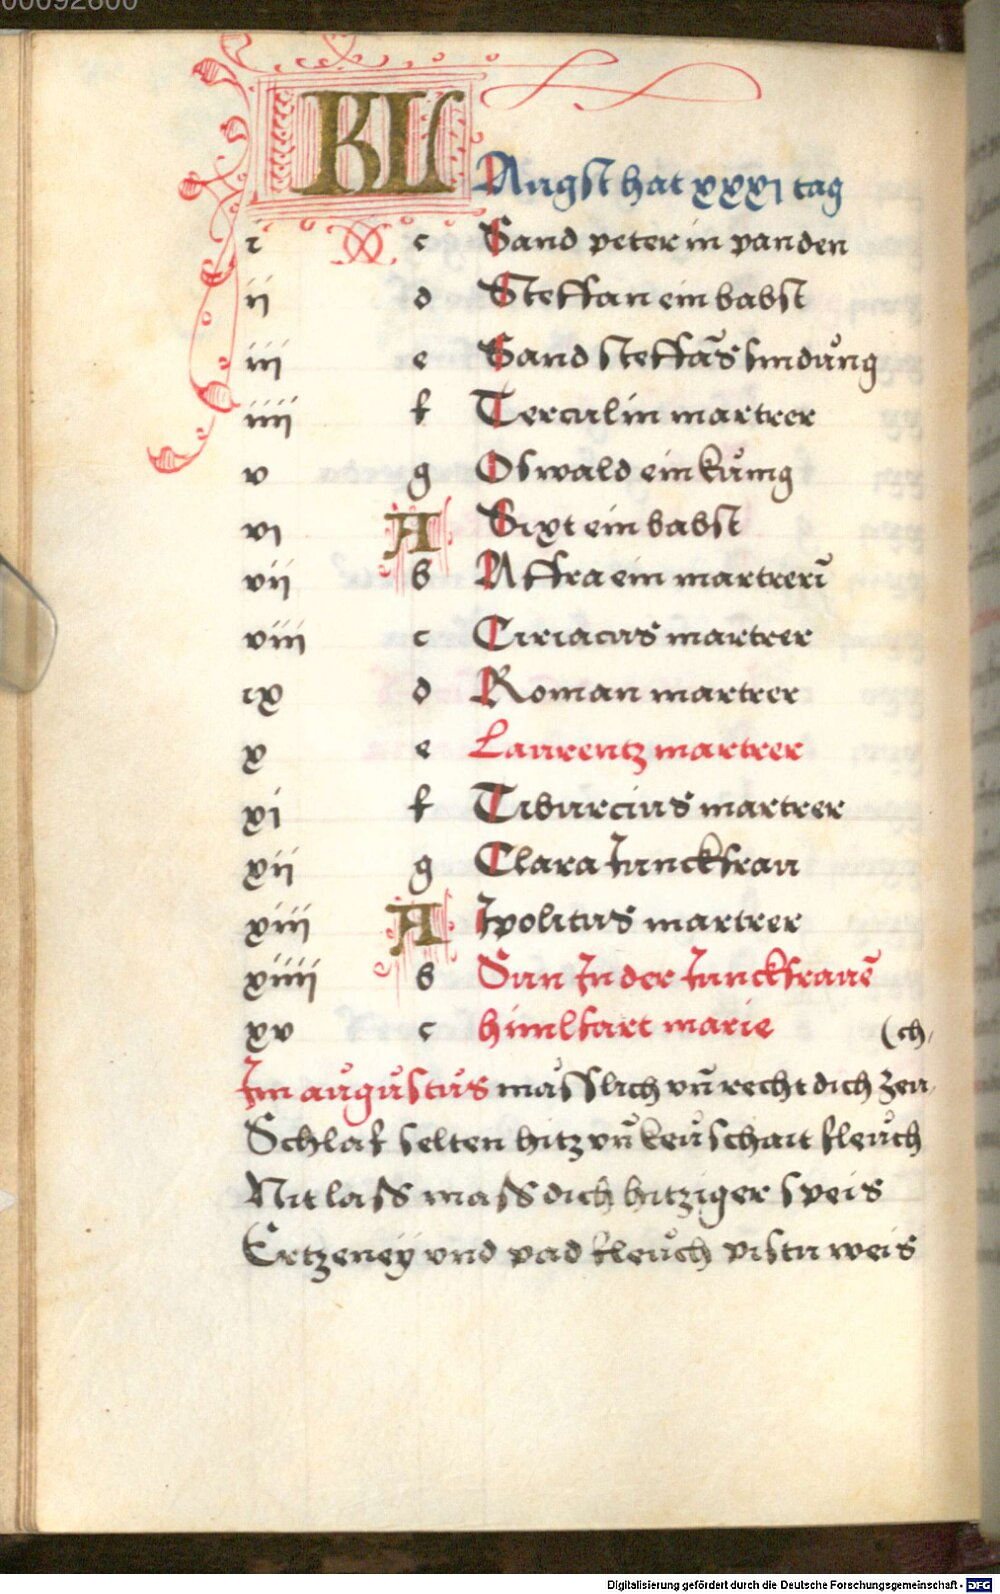 00092800
KL
Augst hat xxxi tag
i c Sand peter in panden
ii d Steffan ein babst
iii e Sand steffãs findũng
iiii f Terculin martrer
v g Oswald ein kůnig
vi A Sixt ein babst
vii b Affra ein martrerĩ
viii c Ciriacus martrer
ix d Roman martrer
x e Laurentz martrer
xi f Tiburcius martrer
xii g Clara Junckfrau
xiii A Ipolitus martrer
xiiii b Sun In der Junckfrauẽ
xv c himlfart marie (ch,
Im augustus mässlich vñ recht dich zeu,
Schlaf selten hitz vñ keuschait fleuch
Nit lass mass dich hitziger speis
Ertzeney vnd pad fleuch pistu weis
Digitalisierung gefördert durch die Deutsche Forschungsgemeinschaft - DFG